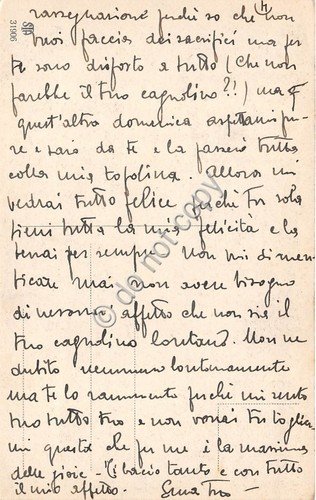 31906
(H
rassegnazione perchè so che non
vuoi faccia dei sacrifici ma per
te sono disposto a tutto (Che non
farebbe il tuo cagnolino?!) ma
quest'altra domenica aspettami pu-
re e sarò da te e la passerò tutta
colla mia topolina. Allora mi
vedrai tutto felice perchè tu sola
tieni tutta la mia felicità e la
terrai per sempre. Non mi dimen-
ticare mai non avere bisogno
di nessuno affetto che non sia il
tuo cagnolino lontano. Non ne
dubito nemmeno lontanamente
ma te lo rammento perchè mi sento
tuo tutto tuo e non vorrei tu toglier-
mi questa che per me è la massima
delle gioie - Ti bacio tanto e con tutto
il mio affetto. Tuo
© do not copy